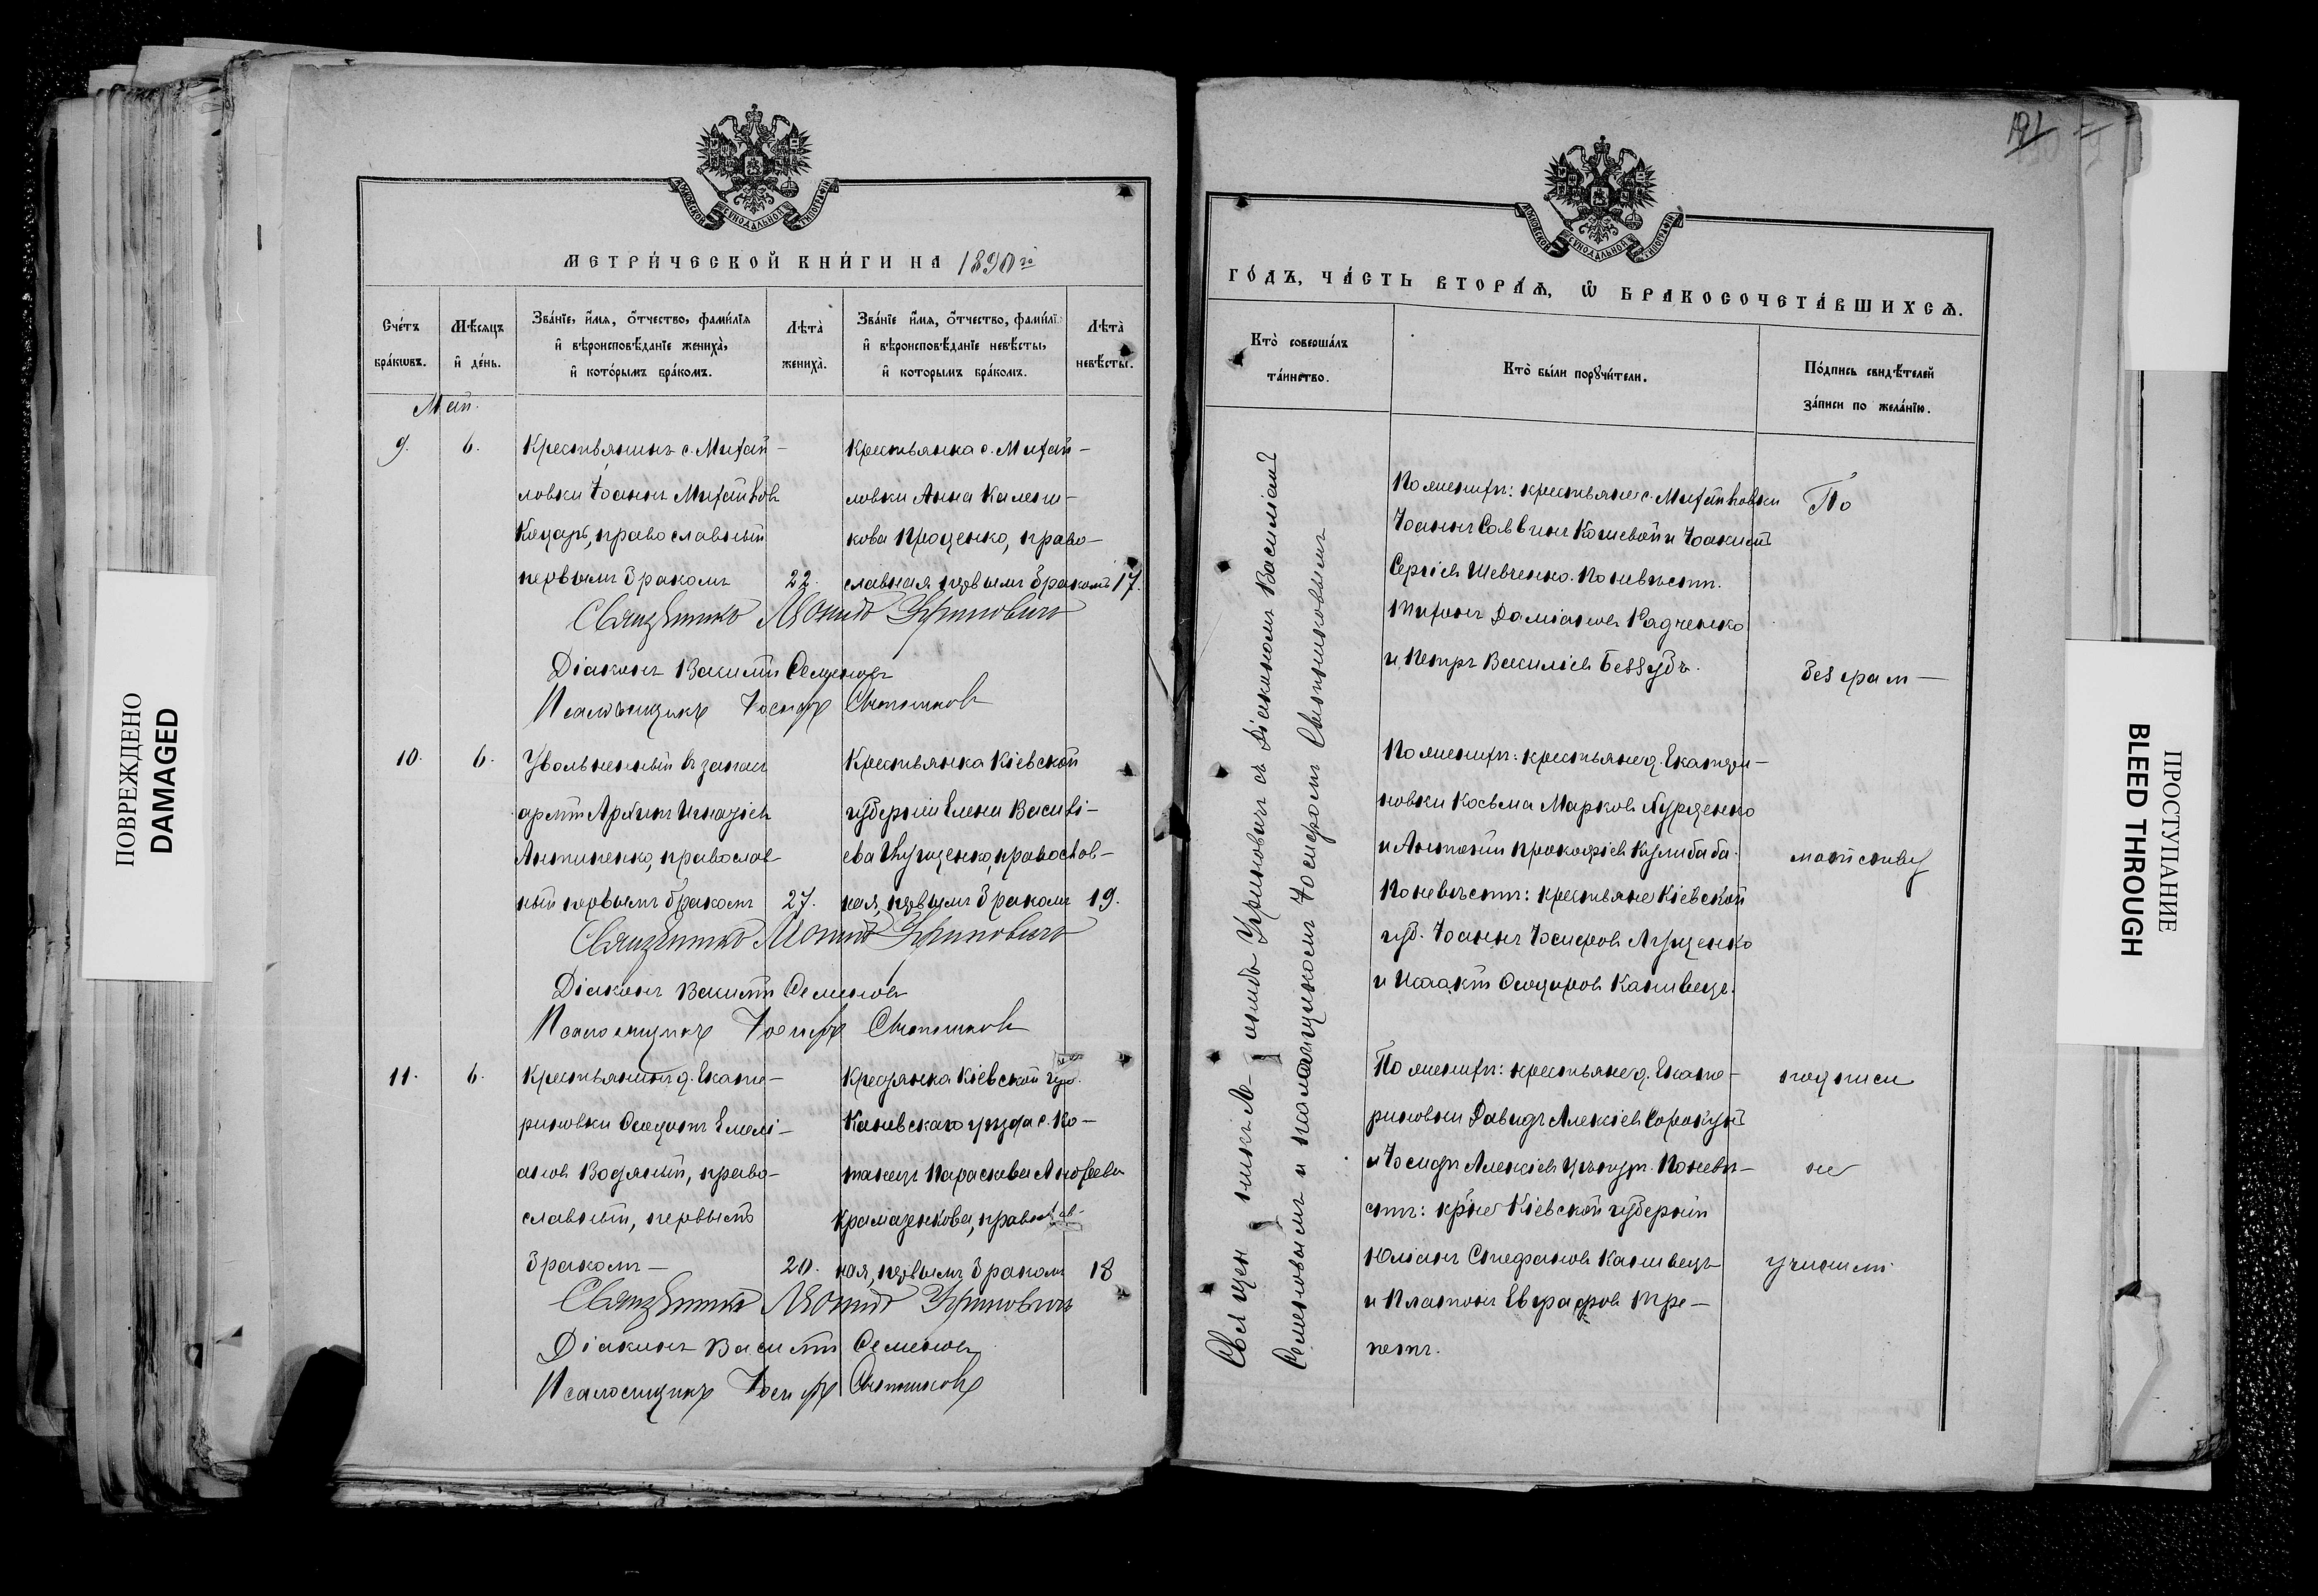 ПОВРЕЖДЕНО
DAMAGED
МОСКОВСКОЙ СѴНОДАЛЬНОЙ ТИПОГРАФІИ
МЕТРИ́ЧЕСКОЙ КНИ́ГИ НА 1890 го
Сче́тъ бра́кѡвъ.
Мѣ́сяцъ и҆ де́нь.
Зва́нїе, и҆́мя, о҆́тчество, фами́лїя и҆ вѣроисповѣ́данїе жениха̀, и҆ кото́рымъ бра́комъ.
Лѣта̀ жениха̀.
Зва́нїе и҆́мя, о҆́тчество, фами́лї. и҆ вѣроисповѣ́данїе невѣ́сты, и҆ которымъ бра́комъ.
Лѣта̀ невѣ́сты.
Май.
9. 6.
Крестьянинъ с. Михай-
ловки Іоаннъ Михайловъ
Коцарь, православный
первымъ бракомъ 22.
Крестьянка с. Михай-
ловки Анна Калени-
кова Проценко, право-
славная первымъ бракомъ 17.
Священникъ Леонидъ
Діаконъ Василій Семеновъ
Псаломщикъ Іосифъ
10. 6.
Уволъненный въ запасъ
арміи Архипъ Игнатіевъ
Антипенко, православ
ный первымъ бракомъ 27.
Крестьянка Кіевской
губерніи Елена Василі-
ева
ная, первымъ бракомъ 19.
Священникъ Леонидъ
Діаконъ Василій Семеновъ
Псаломщикъ Іосифъ
11. 6.
Крестьянинъ д. Екате-
риновки Ѳеодотъ Емелі-
ановъ Водяный, право-
славный, первымъ
бракомъ — 20.
Крестянка Кіевской губ.
Каневскаго уѣзда с. По-
тапецъ Параскева Андреева
Крамаренкова, правосла-
ная, первымъ бракомъ 18
Священникъ Леонидъ
Діаконъ Василій Семеновъ
Псаломщикъ Іосифъ
121
МОСКОВСКОЙ СѴНОДАЛЬНОЙ ТИПОГРАФІИ
ГО́ДЪ, ЧА́СТЬ ВТОРА́Ѧ, Ѽ БРАКОСОЧЕТА́ВШИХСѦ.
Кто̀ соверша́лъ та́инство.
Кто̀ бы́ли порꙋчи́тели.
По́дпись свидѣ́телей за́писи по жела́нїю.
Священникъ Леонидъ съ Діакономъ Василіемъ
Семеновымъ и псаломщикомъ Іосифомъ
По женихѣ: крестьяне с. Михайловки
Іоаннъ Саввинъ Кошевой и Іоакимъ
Сергіевъ Шевченко. По невѣстѣ.
Тихонъ Даміановъ
и Петръ Василіевъ Беззубъ.
По женихѣ: крестьяне д. Екатери-
новки Косьма Марковъ
и Антоній Прокофіевъ Кулибаба.
По невѣстѣ: крестьяне Кіевской
губ. Іоаннъ Іосифовъ
и Исаакій Ѳеодоровъ
По женихѣ: крестьяне д. Екате-
риновки Давидъ Алексіевъ
и Іосифъ Алексіевъ По невѣ-
стѣ: кр̃не Кіевской губерніи
Юліанъ Стефановъ
и Платонъ Евграфовъ Тре-
петъ.
По
безграм—
мотству
подписи
не
учинили
ПРОСТУПАНИЕ
BLEED THROUGH